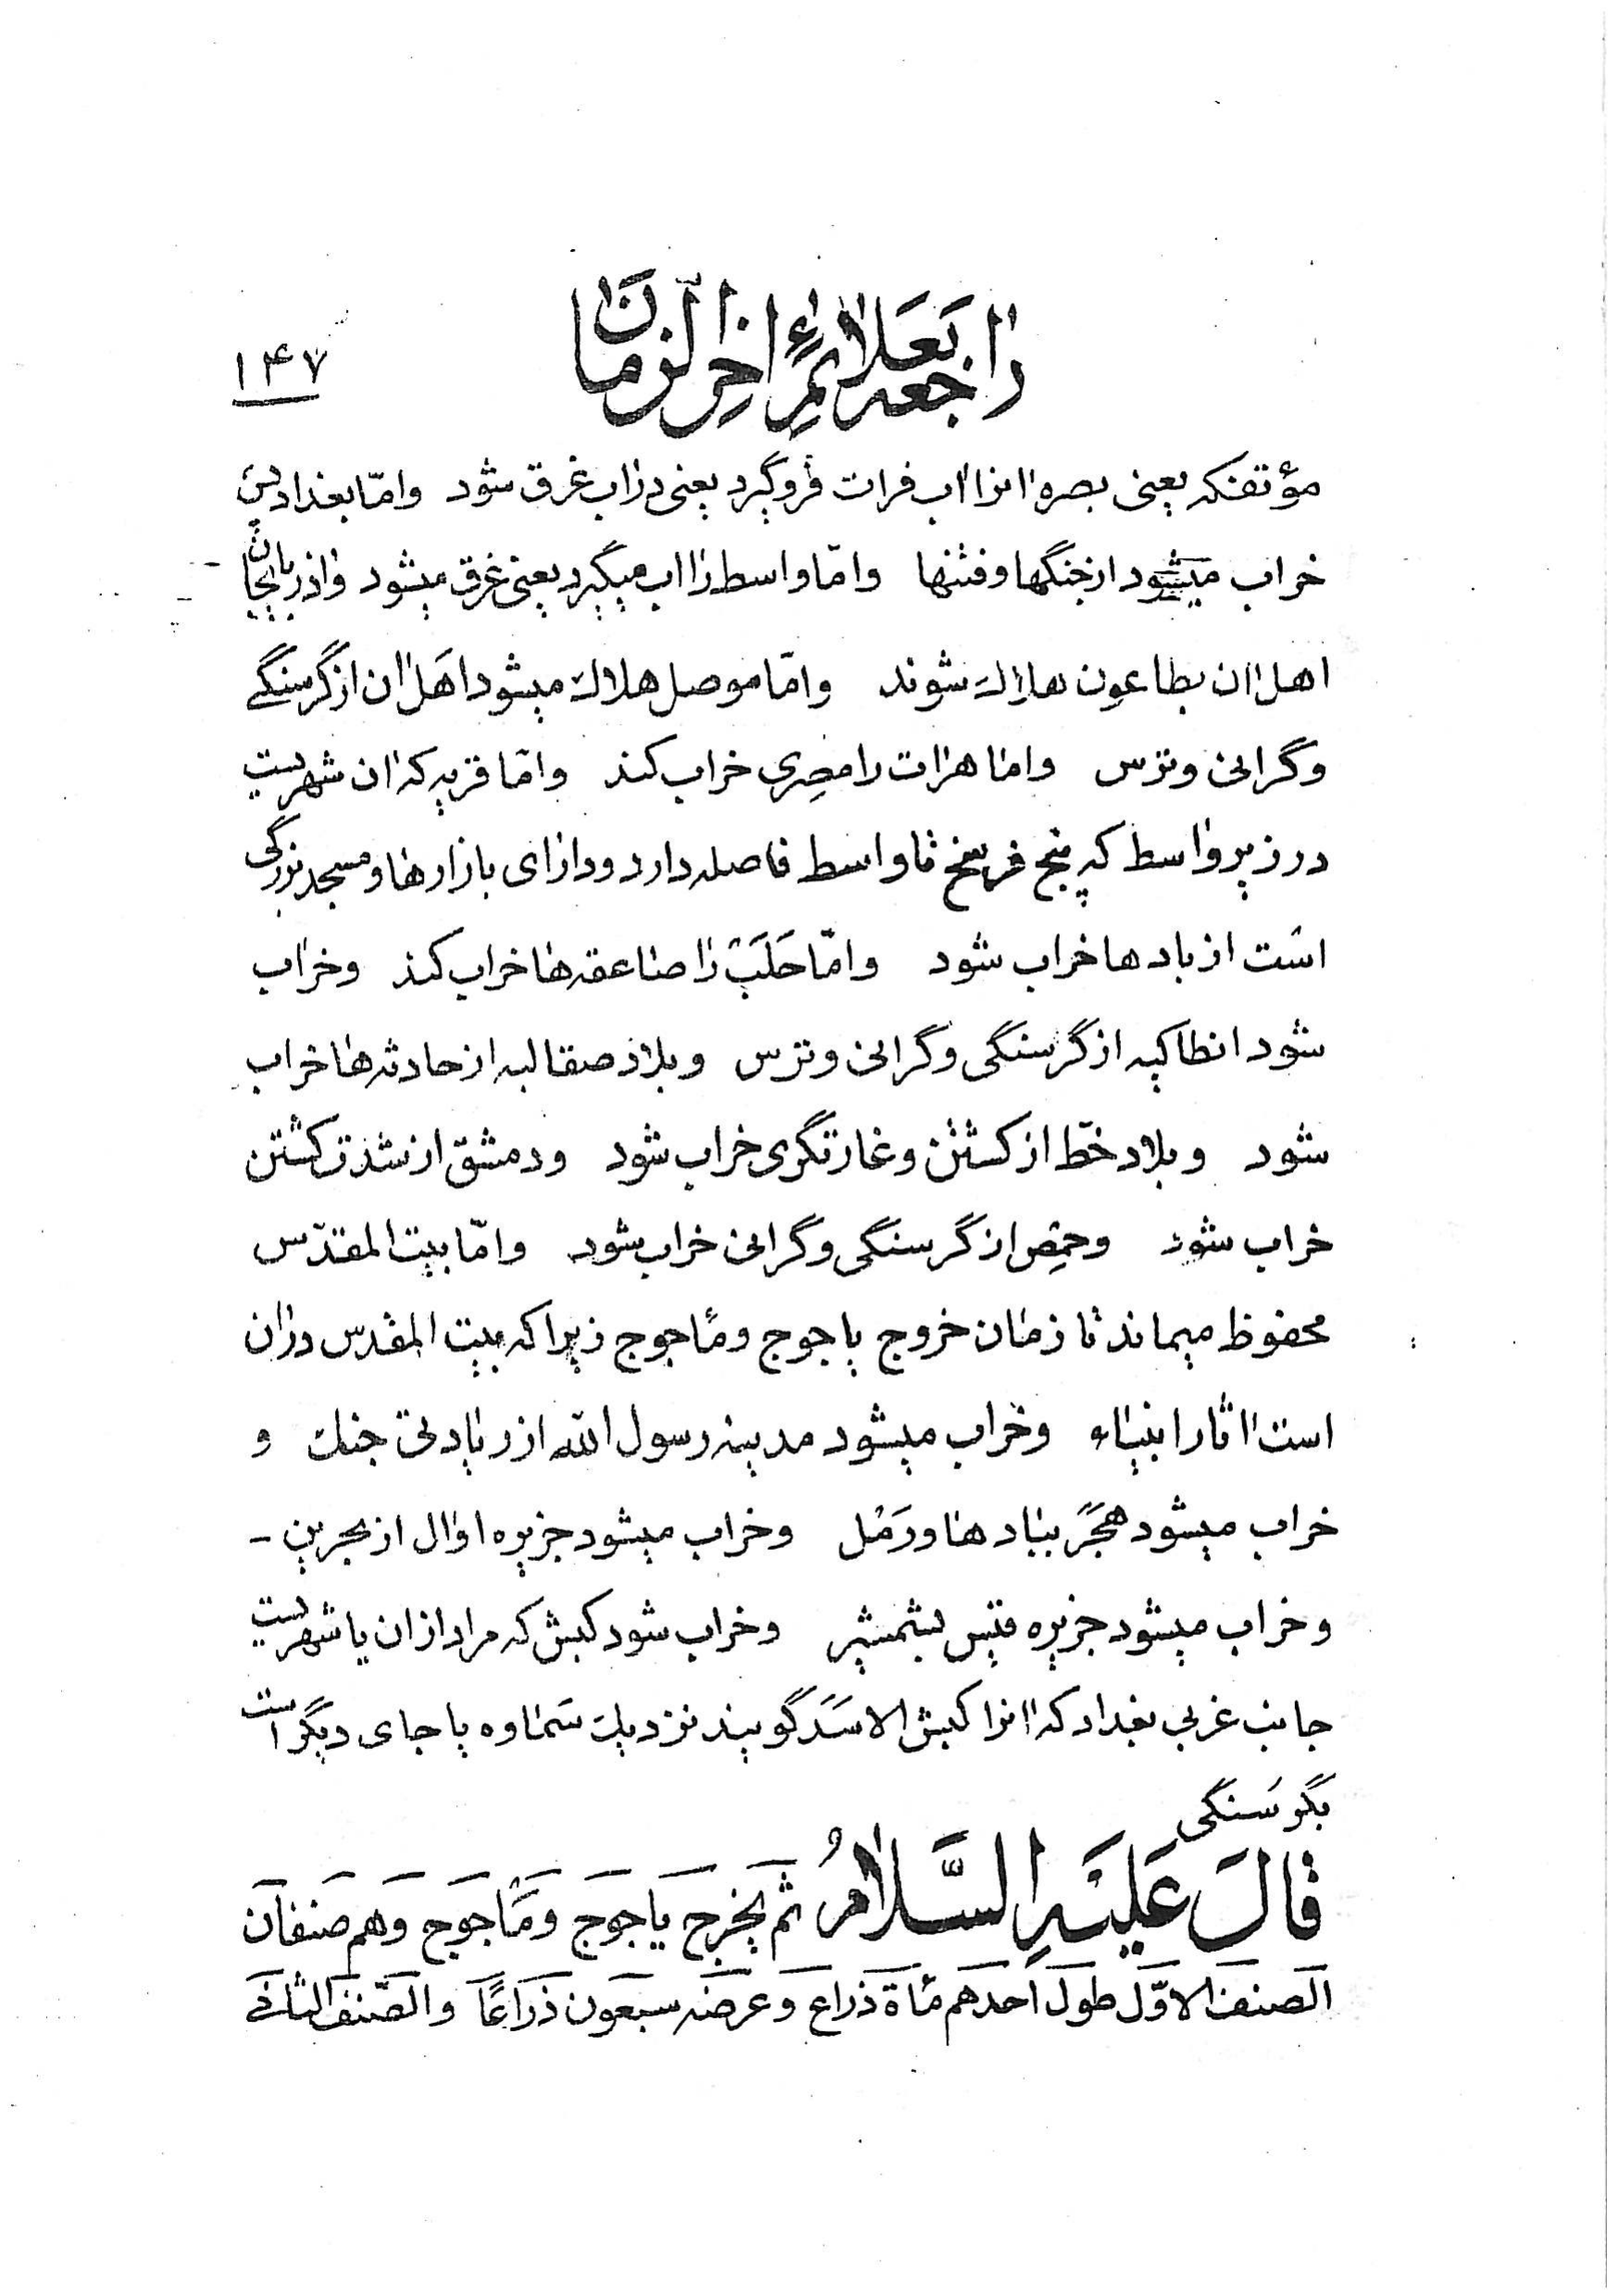 راجعه بعلائم اخر الزمان
۱۴۷
مؤتفکه یعنی بصره انرا اب فرات فروگیرد یعنی دراب غرق شود وامّا بغداد پس
خراب میشود از جنگها و فتنها وامّا واسط را اب میگیرد یعنی غرق میشود واذربایجان
اهل ان بطاعون هلاک شوند وامّا موصل هلاک میشود اهل ان از گرسنگے
وگرانی وترس وامّا هرات را مصری خراب کند وامّا قریه که ان شهریست
در زیر واسط که پنج فرسخ تا واسط فاصله دارد ودارای بازارها ومسجد بزرگی
است از بادها خراب شود وامّا حَلَبْ را صاعقه ها خراب کند وخراب
شود انطاکیه از گرسنگی وگرانی وترس وبلاد صقالبه از حادثه ها خراب
شود وبلاد خطّ از کشتن وغارتگری خراب شود ودمشق از شدّت کشتن
خراب شود وحمِص از گرسنگی وگرانی خراب شود وامّا بیت المقدّس
محفوظ میماند تا زمان خروج یاجوج ومأجوج زیرا که بیت المقدس دران
است اثار انبیاء وخراب میشود مدینه رسول اللّه از زیادتی جنک و
خراب میشود هَجَر ببادها ورَمْل وخراب میشود جزیره اوال از بحرین -
وخراب میشود جزیره قیس بشمشیر وخراب شود کبش که مراد از ان یا شهریست
جانب غربی بغداد که انرا کبش الاسَد گویند نزدیک سَماوه یا جای دیگر است
بگرسَنگی
قالَ عَلَیْهِ السَّلامُ ثم یخرج یاجوج ومَأجوج وهم صنفان
الصنف الاوّل طول احدهم مأة ذراع وعرضه سبعون ذراعًا والصّنف الثانے